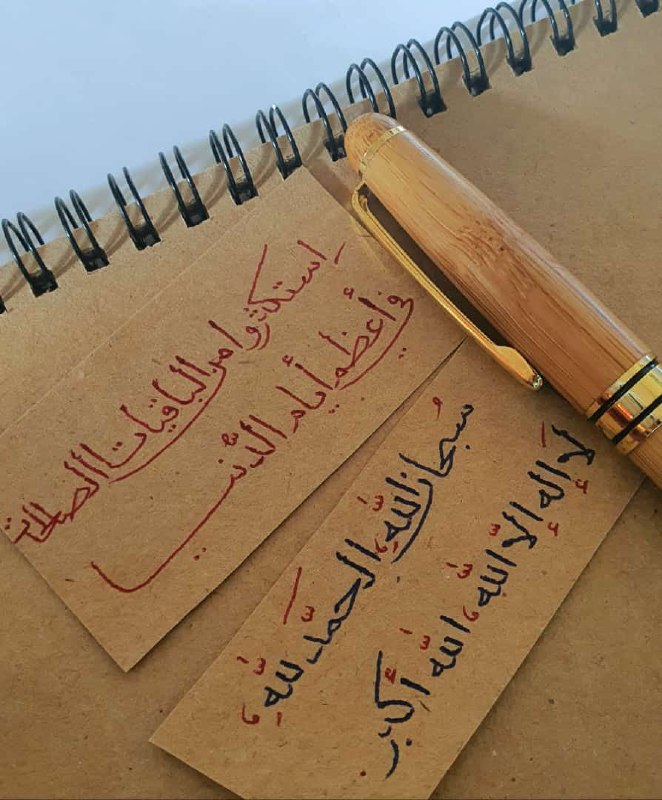 استكثروا من الباقيات الصالحات
في أعظم أيام الدُّنيا
سُبحان اللَّهِ، الحمَّد للَّهِ،
لَا إله إلَّا اللَّه، اللَّه أكبر